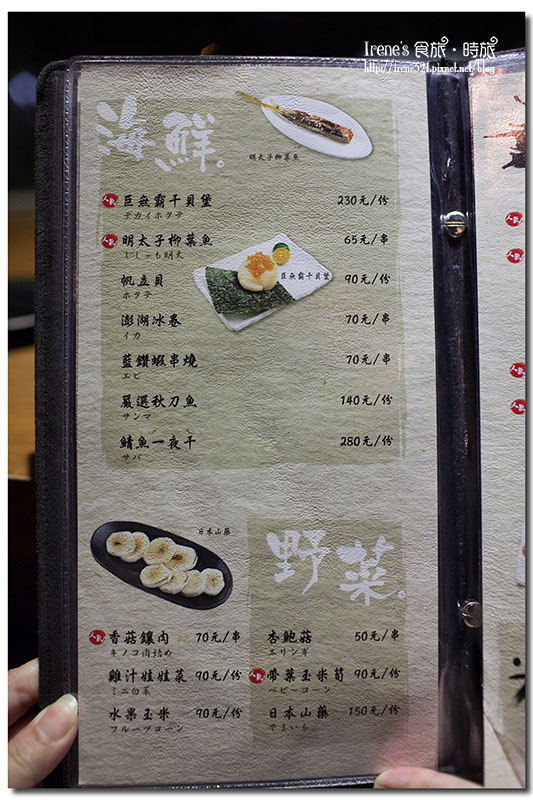 Irene's 食旅·時旅
http://irene321.pixnet.net/blog
海鮮。
明太子柳葉魚
人氣 巨無霸干貝堡 230元/份
デカイホタテ
人氣 明太子柳葉魚 65元/串
ししゃも明太
巨無霸干貝堡
帆立貝 90元/份
ホタテ
澎湖冰卷 70元/串
イカ
藍鑽蝦串燒 70元/串
エビ
嚴選秋刀魚 140元/份
サンマ
鯖魚一夜干 280元/份
サバ
日本山藥
野菜。
人氣 香菇鑲肉 70元/串
キノコ肉詰め
雞汁娃娃菜 90元/份
ミニ白菜
水果玉米 90元/份
フルーツコーン
杏鮑菇 50元/串
エリンギ
人氣 帶葉玉米筍 90元/份
ベビーコーン
日本山藥 150元/份
やまいも